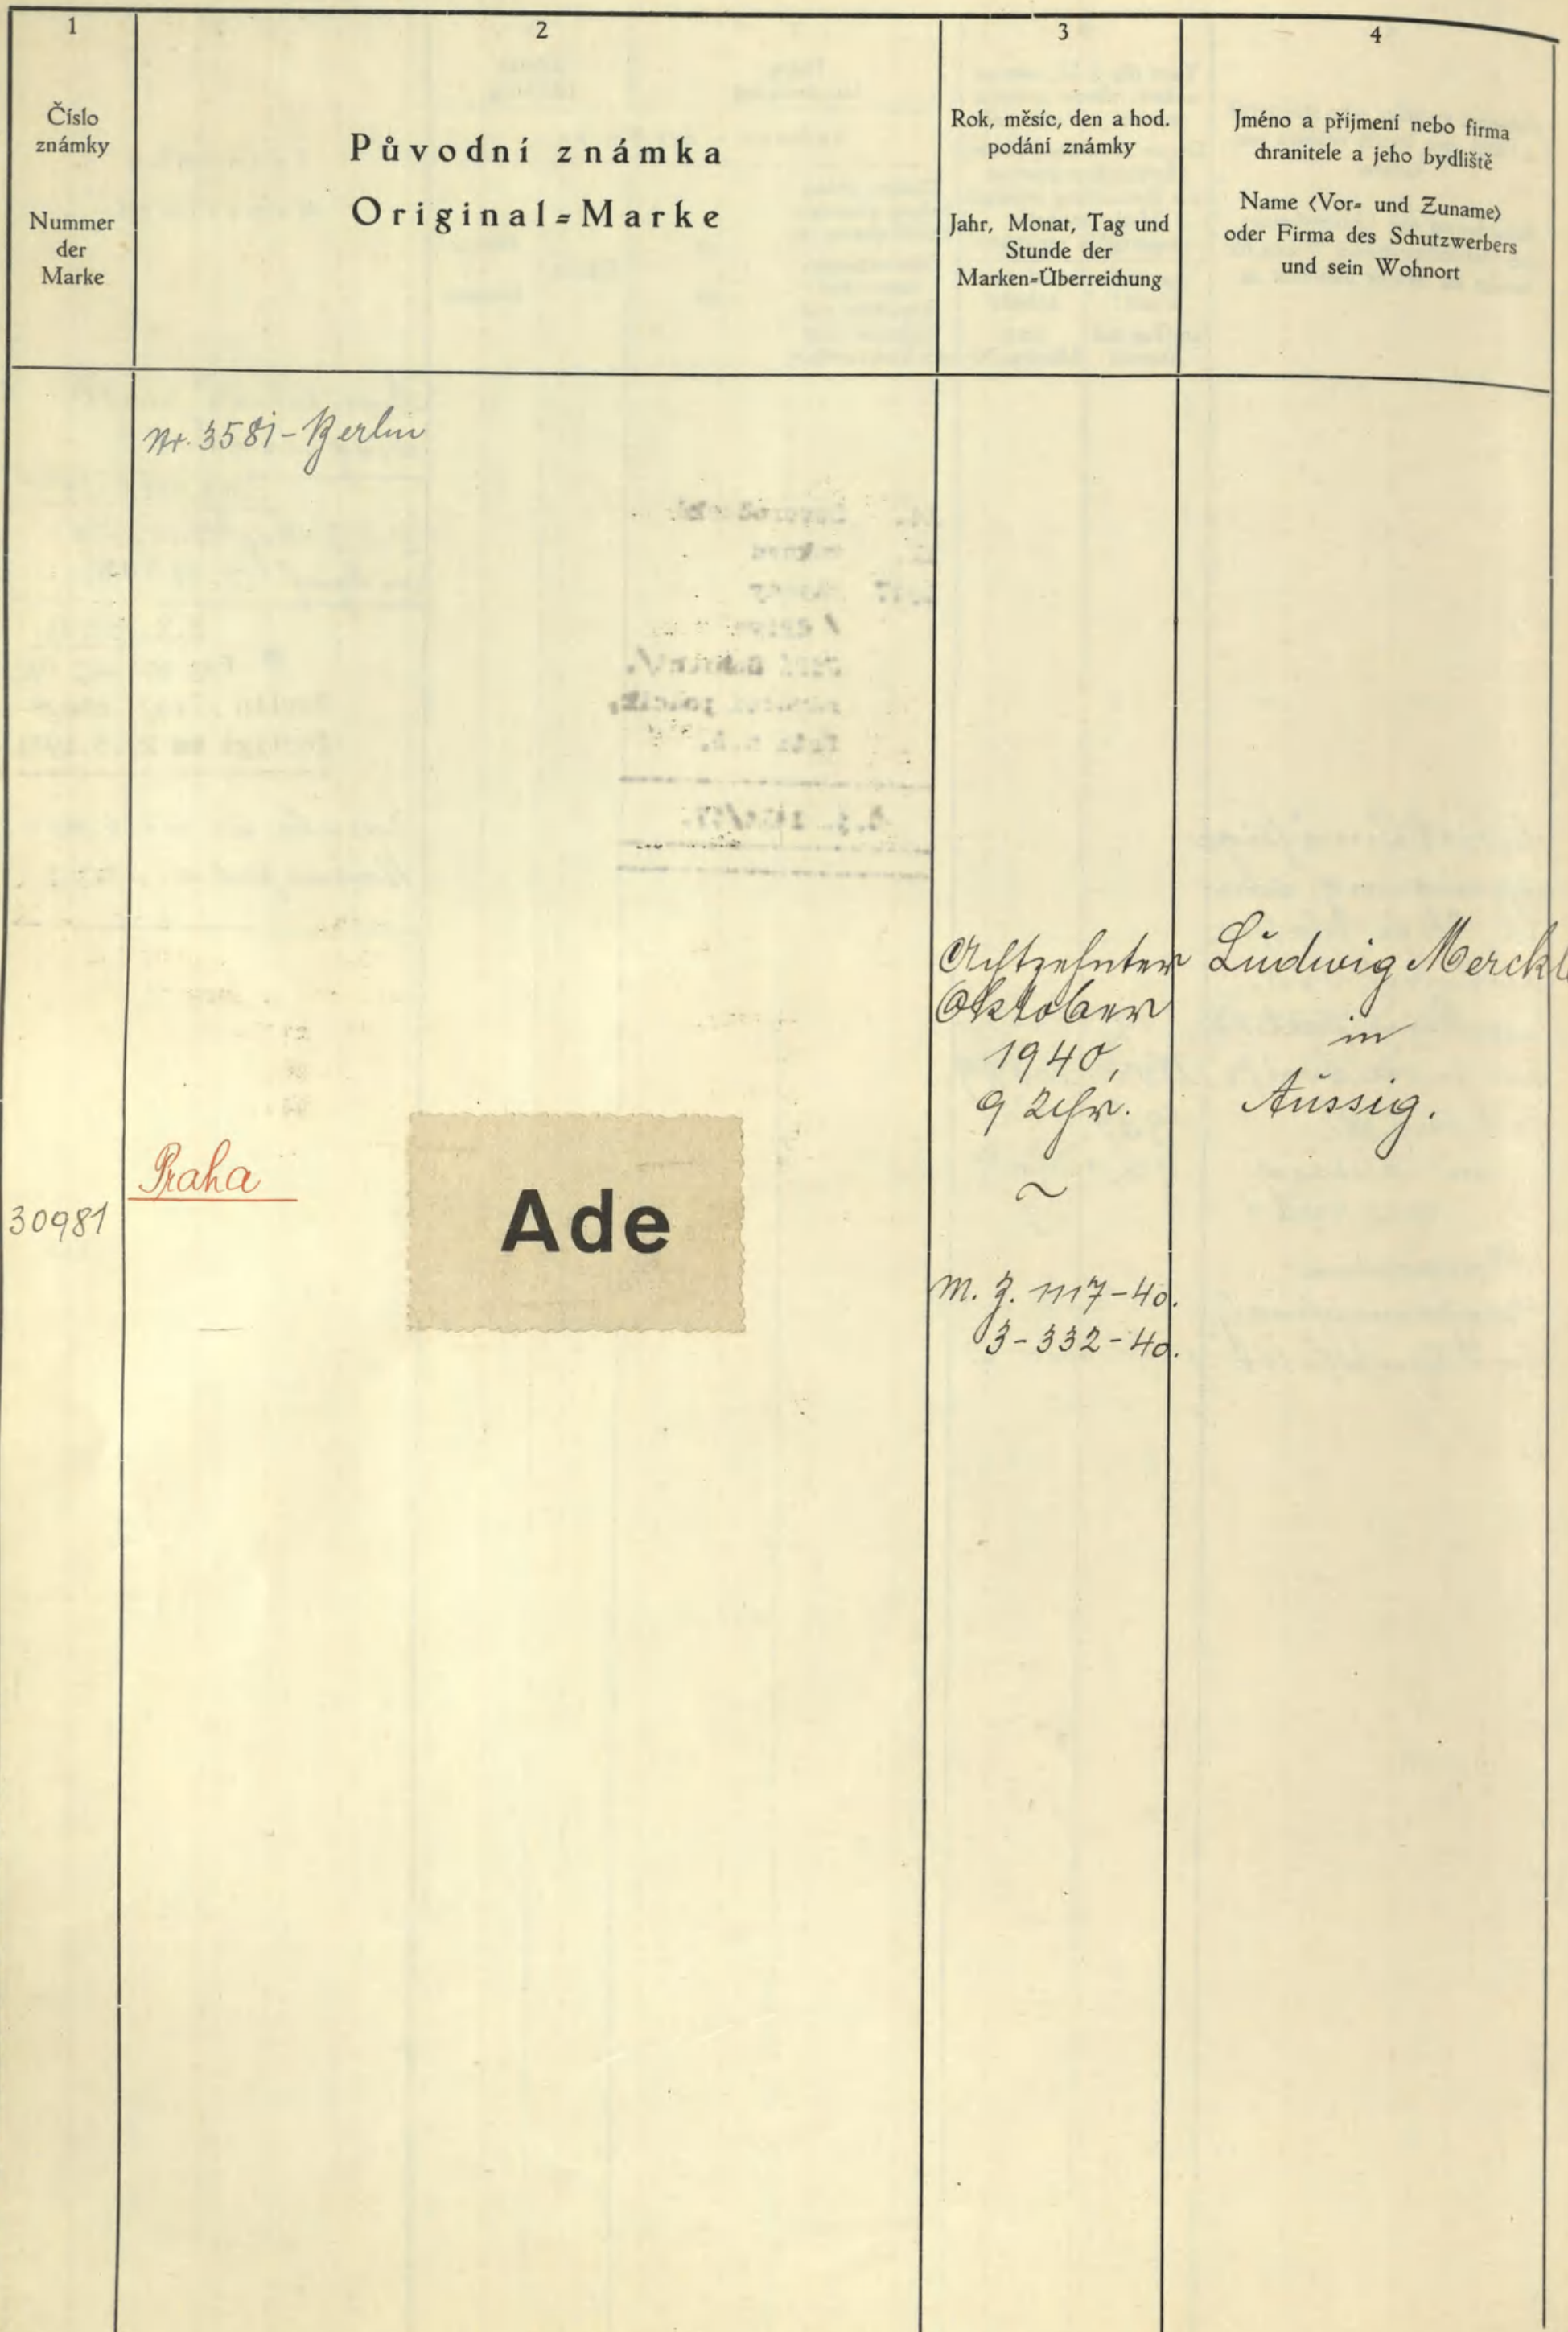 1
Číslo
známky
Nummer
der
Marke
2
Původní známka
Original=Marke
3
Rok, měsíc, den a hod.
podání známky
Jahr, Monat, Tag und
Stunde der
Marken=Überreichung
4
Jméno a přijmení nebo firma
chranitele a jeho bydliště
Name (Vor= und Zuname)
oder Firma des Schutzwerbers
und sein Wohnort
Nr. 3581-Berlin
30981
Praha
Ade
Achtzehnter
Oktober
1940,
9 Uhr.
~
M. Z. 1117-40.
3-332-40.
Ludwig Merckl
in
Aussig.